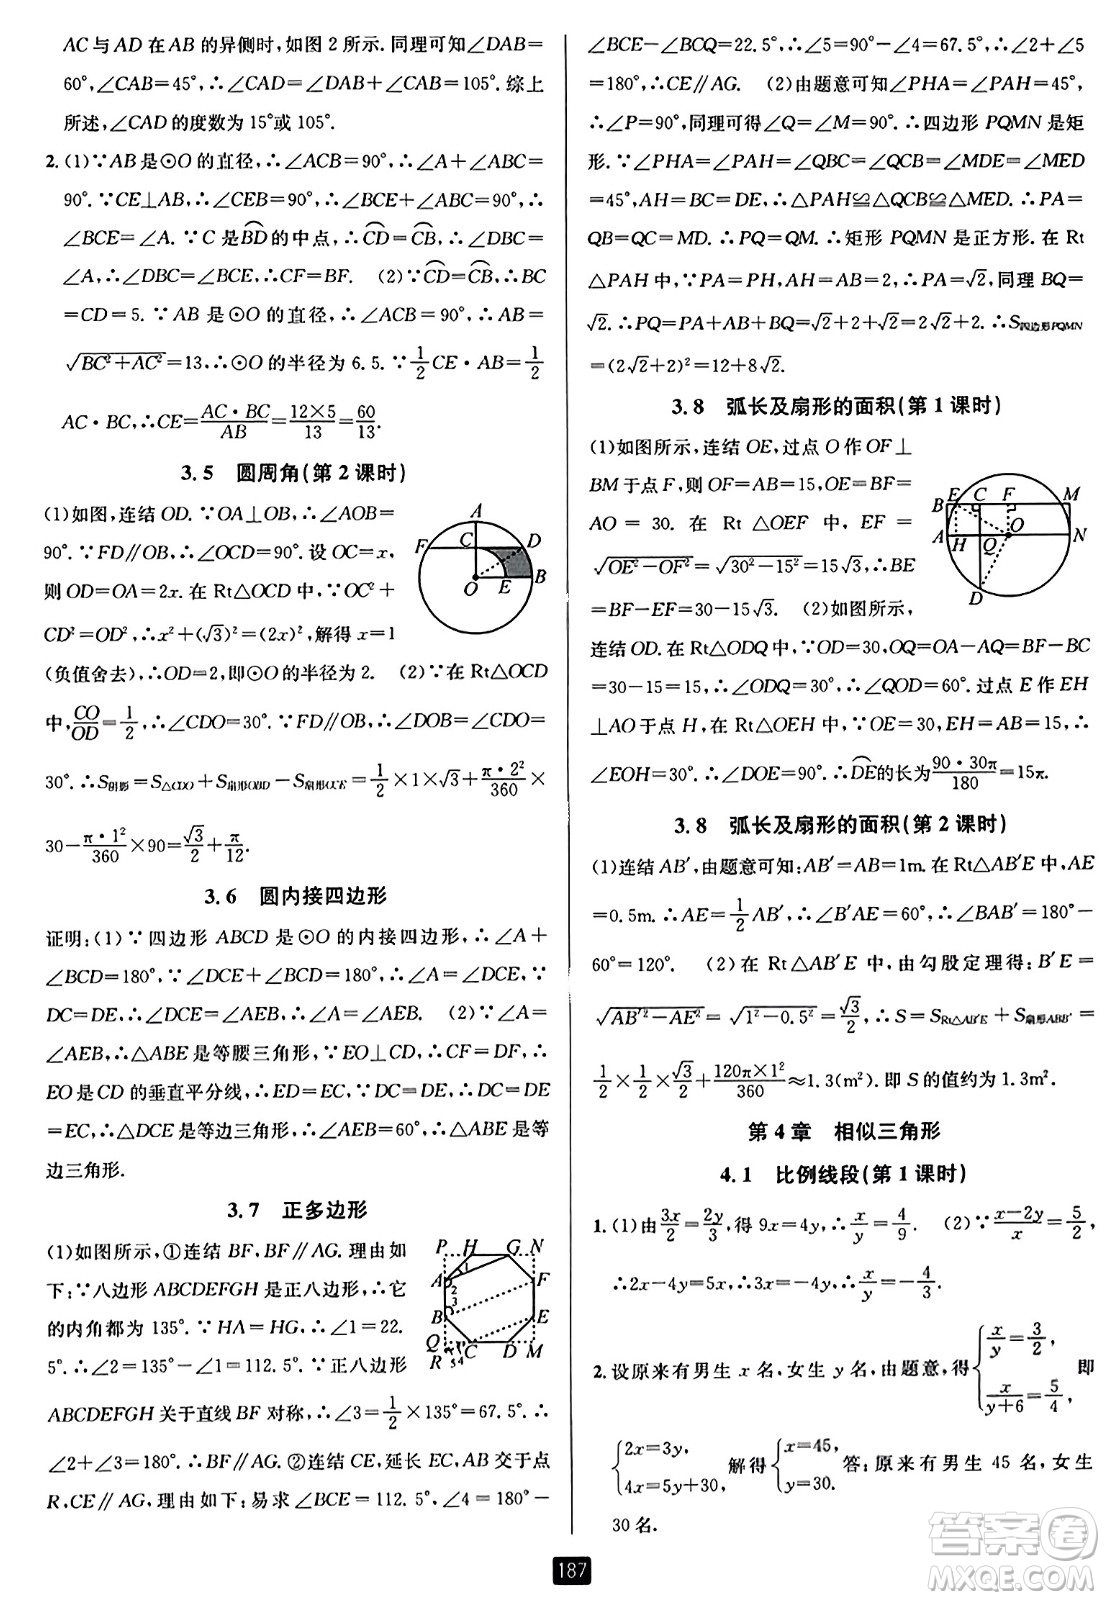 AC与AD在AB的异侧时,如图2所示.同理可知∠DAB=
60°,∠CAB=45°,∴∠CAD=∠DAB+∠CAB=105°.综上
所述,∠CAD的度数为15°或105°.
2.(1)∵AB是⊙O的直径,∴∠ACB=90°,∴∠A+∠ABC=
90°.∵CE⊥AB,∴∠CEB=90°,∴∠BCE+∠ABC=90°,∴
∠BCE=∠A.∵C是BD⌒的中点,∴CD⌒=CB⌒,∴∠DBC=
∠A,∴∠DBC=∠BCE,∴CF=BF. (2)∵CD⌒=CB⌒,∴BC
=CD=5.∵AB是⊙O的直径,∴∠ACB=90°,∴AB=
√(BC²+AC²)=13,∴⊙O的半径为6.5.∵1/2CE·AB=1/2
AC·BC,∴CE=AC·BC/AB=12×5/13=60/13.
3.5 圆周角(第2课时)
(1)如图,连结OD.∵OA⊥OB,∴∠AOB=
90°.∵FD∥OB,∴∠OCD=90°.设OC=x,
则OD=OA=2x.在Rt△OCD中,∵OC²+
CD²=OD²,∴x²+(√3)²=(2x)²,解得x=1
(负值舍去),∴OD=2,即⊙O的半径为2. (2)∵在Rt△OCD
中,CO/OD=1/2,∴∠CDO=30°.∵FD∥OB,∴∠DOB=∠CDO=
30°.∴S阴影=S△CDO+S扇形OBD-S扇形OCE=1/2×1×√3+π·2²/360×
30-π·1²/360×90=√3/2+π/12.
A
F C D
O E B
3.6 圆内接四边形
证明:(1)∵四边形ABCD是⊙O的内接四边形,∴∠A+
∠BCD=180°,∵∠DCE+∠BCD=180°,∴∠A=∠DCE,∵
DC=DE,∴∠DCE=∠AEB,∴∠A=∠AEB. (2)∵∠A=
∠AEB,∴△ABE是等腰三角形,∵EO⊥CD,∴CF=DF,∴
EO是CD的垂直平分线,∴ED=EC,∵DC=DE,∴DC=DE
=EC,∴△DCE是等边三角形,∴∠AEB=60°,∴△ABE是等
边三角形.
3.7 正多边形
(1)如图所示,①连结BF,BF∥AG.理由如
下:∵八边形ABCDEFGH是正八边形,∴它
的内角都为135°.∵HA=HG,∴∠1=22.
5°.∴∠2=135°-∠1=112.5°.∵正八边形
ABCDEFGH关于直线BF对称,∴∠3=1/2×135°=67.5°.∴
∠2+∠3=180°,∴BF∥AG.②连结CE,延长EC,AB交于点
R,CE∥AG,理由如下:易求∠BCE=112.5°,∠4=180°-
P H G N
1
A F
2
3
B E
Q C D M
R 5 4
∠BCE-∠BCQ=22.5°,∴∠5=90°-∠4=67.5°,∴∠2+∠5
=180°,∴CE∥AG. (2)由题意可知∠PHA=∠PAH=45°,
∴∠P=90°,同理可得∠Q=∠M=90°.∴四边形PQMN是矩
形.∵∠PHA=∠PAH=∠QBC=∠QCB=∠MDE=∠MED
=45°,AH=BC=DE,∴△PAH≌△QCB≌△MED.∴PA=
QB=QC=MD.∴PQ=QM.∴矩形PQMN是正方形.在Rt
△PAH中,∵PA=PH,AH=AB=2,∴PA=√2,同理BQ=
√2.∴PQ=PA+AB+BQ=√2+2+√2=2√2+2.∴S四边形PQMN
=(2√2+2)²=12+8√2.
3.8 弧长及扇形的面积(第1课时)
(1)如图所示,连结OE,过点O作OF⊥
BM于点F,则OF=AB=15,OE=BF=
AO=30.在Rt△OEF中,EF=
√(OE²-OF²)=√(30²-15²)=15√3,∴BE
=BF-EF=30-15√3. (2)如图所示,
连结OD.在Rt△ODQ中∵OD=30,OQ=OA-AQ=OA-BC
=30-15=15,∴∠ODQ=30°,∴∠QOD=60°.过点E作EH
⊥AO于点H,在Rt△OEH中,∵OE=30,EH=AB=15,∴
∠EOH=30°.∴∠DOE=90°.∴DE⌒的长为90·30π/180=15π.
B E C F M
A H Q O N
D
3.8 弧长及扇形的面积(第2课时)
(1)连结AB′,由题意可知:AB′=AB=1m.在Rt△AB′E中,AE
=0.5m.∴AE=1/2AB′,∴∠B′AE=60°,∴∠BAB′=180°-
60°=120°. (2)在Rt△AB′E中,由勾股定理得:B′E=
√(AB′²-AE²)=√(1²-0.5²)=√3/2,∴S=SRt△AB′E+S扇形ABB′=
1/2×1/2×√3/2+120π×1²/360≈1.3(m²).即S的值约为1.3m².
第4章 相似三角形
4.1 比例线段(第1课时)
1.(1)由3x/2=2y/3,得9x=4y,∴x/y=4/9. (2)∵x-2y/x=5/2,
∴2x-4y=5x,∴3x=-4y,∴x/y=-4/3.
2.设原来有男生x名,女生y名,由题意,得{x/y=3/2, x/y+6=5/4, 即
{2x=3y, 4x=5y+30, 解得{x=45, y=30. 答:原来有男生45名,女生
30名.
187
答案圈
MXQE.COM